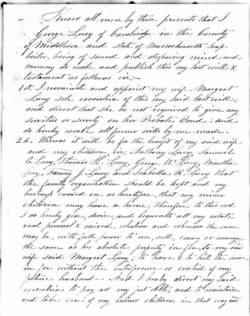 Know all men by these presents that I
George Lucy of Cambridge in the County
of Middlesex and State of Massachusetts soap
boiler, being of sound and disposing mind and
memory do make and publish this my last will &
testament as follows viz:-
1st I nominate and appoint my wife Margaret
Lucy the executrix of this my said last will,
and direct that she be not required to give any
sureties or surety on her Probate Bond: and
do hereby revoke all former wills by me made.
2d. Whereas it will be for the benefit of my said wife
and my children,
Lucy, Thomas H. Lucy, George W. Lucy, Martha
Lucy, J. Lucy and Isabella R. Lucy that
the family organization should be kept and my
minor
children may have a home; therefore to this end
I do hereby give, devise, and bequeath all my estate
real personal & mixed, wherever the same
may be, with full power to use, sell, or manage
the same as her absolute property in fee, to my
wife said Margaret Lucy, to have & to hold the same
in fee without the interference or control of any
future husband. And I hereby direct my said
executrix to pay all my just debts, and to maintain
and take care of my minor children in that